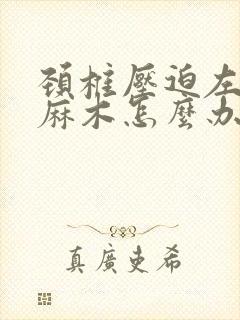 頚椎壓迫左
麻木怎麼办
真廣吏希